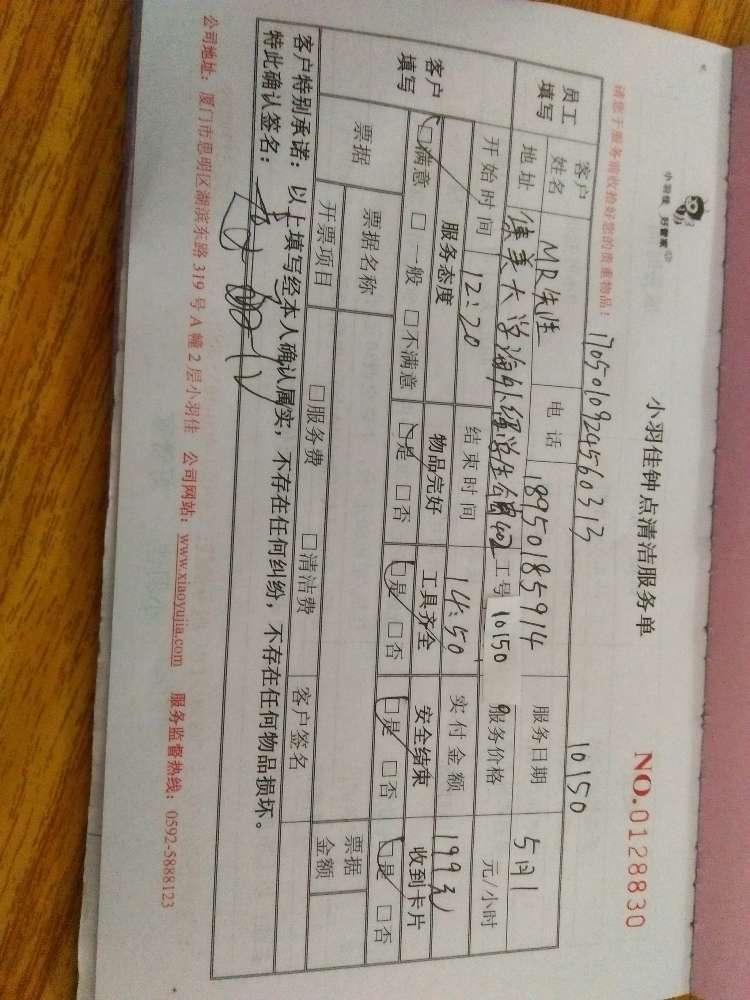 小羽佳 好管家
小羽佳钟点清洁服务单
NO.0128830
请您于服务前收拾好您的贵重物品！
17050109245603 13
10150
员工填写 客户姓名 MR先生 电话 18950185914 服务日期 5月1
地址 集美大学海外 学生公寓402 工号 10150 服务价格 元/小时
开始时间 12:20 结束时间 14:50 实付金额 199元
客户填写 服务态度 物品完好 工具齐全 安全结束 收到卡片
□满意 □一般 □不满意 □是 □否 □是 □否 □是 □否 □是 □否
票据 票据名称 客户签名 票据金额
开票项目 □服务费 □清洁费
客户特别承诺：以上填写经本人确认属实，不存在任何纠纷，不存在任何物品损坏。
特此确认签名：
公司地址：厦门市思明区湖滨东路 319 号 A 幢 2 层小羽佳 公司网站：www.xiaoyujia.com 服务监督热线：0592-5888123